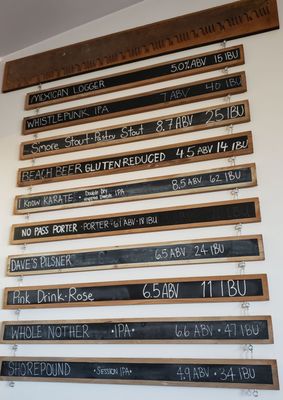 MEXICAN LOGGER 5.0% ABV 15 IBU
WHISTLEPUNK IPA 7 ABV 40 IBU
S'more Stout-Pastry Stout 8.7% ABV 25 IBU
BEACH BEER GLUTEN REDUCED 4.5 ABV 14 IBU
KNOW KARATE • Double Dry Hopped Double IPA 8.5% ABV 62 IBU
NO PASS PORTER -PORTER- 6.1 ABV - 18 IBU
DAVE'S PILSNER 6.5 ABV 24 IBU
Pink Drink-Rose 6.5 ABV 11 IBU
WHOLE NOTHER •IPA• 6.6 ABV • 47 IBU
SHOREPOUND •SESSION IPA• 4.9 ABV • 34 IBU